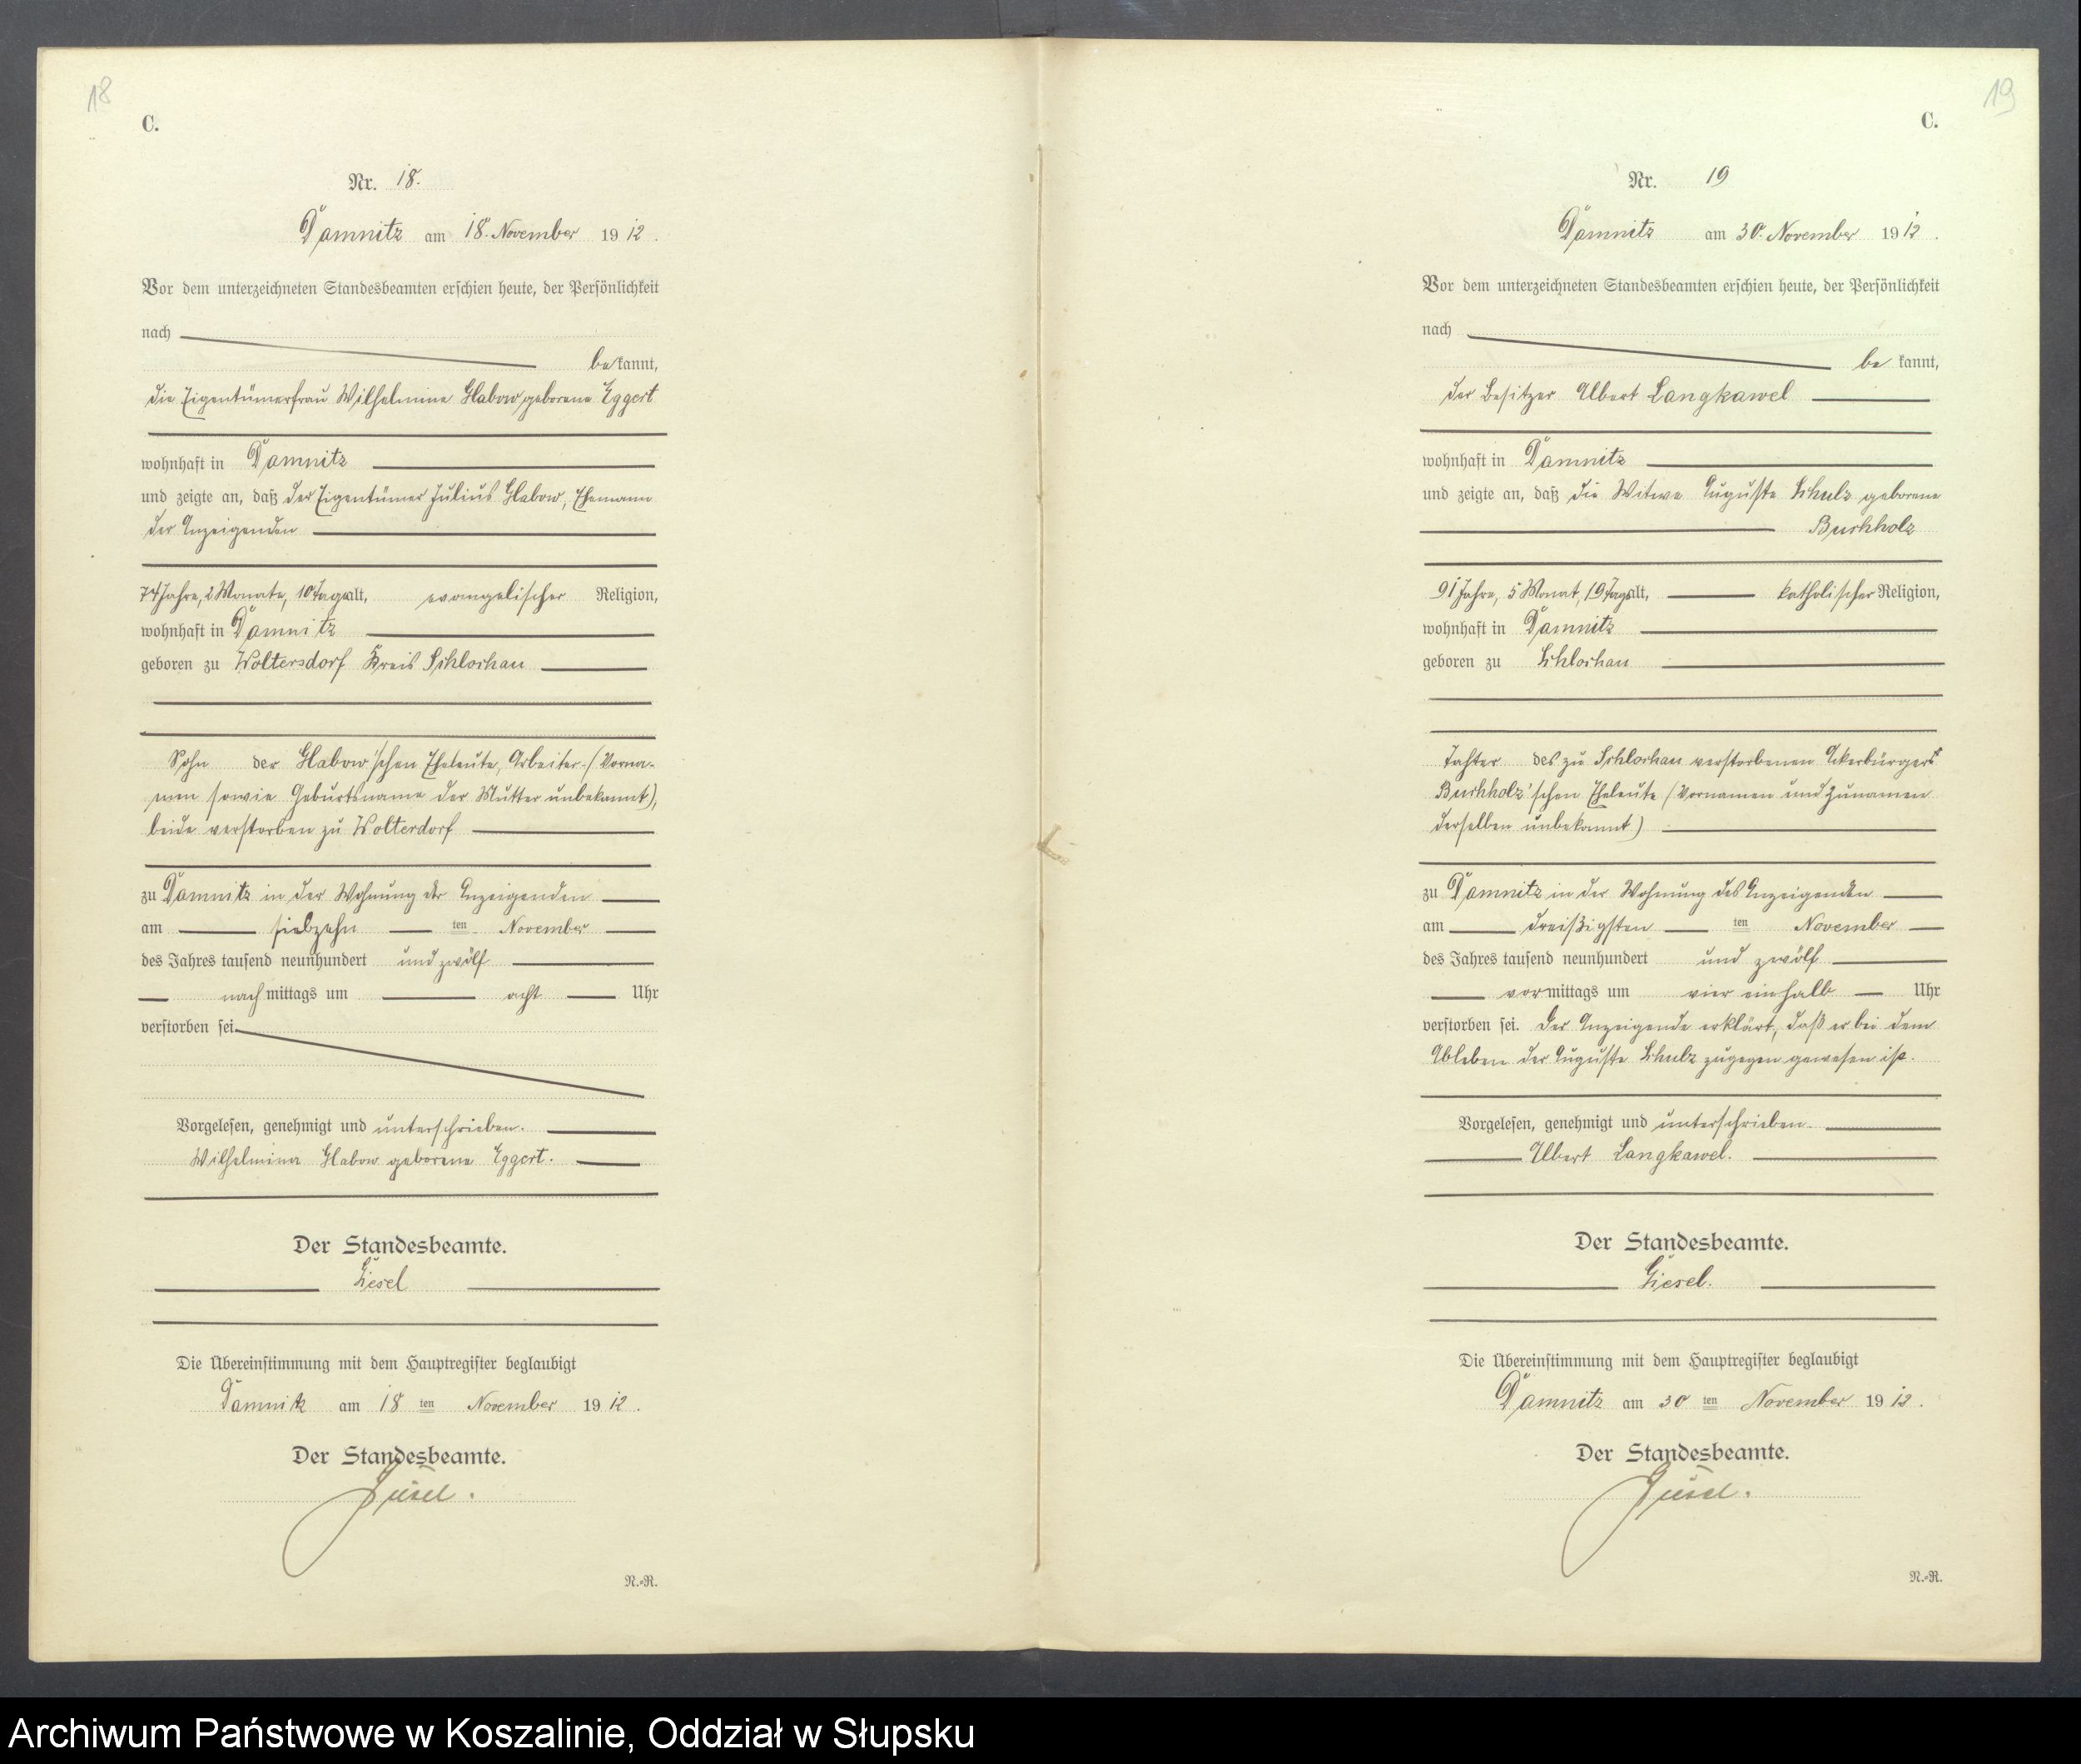 18
C.
Nr. 18.
Damnitz am 18. November 1912.
Vor dem unterzeichneten Standesbeamten erschien heute, der Persönlichkeit
nach
bekannt,
die Eigentümerfrau Wilhelmine Glabow geborene Eggert
wohnhaft in Damnitz
und zeigte an, daß der Eigentümer Julius Glabow, Ehemann
der Anzeigenden
74 Jahre, 2 Monate, 10 Tage alt, evangelischer Religion,
wohnhaft in Damnitz
geboren zu Woltersdorf Kreis Schlochau
Sohn der Glabow'schen Eheleute, Arbeiter- (Vorna-
men sowie Geburtsname der Mutter unbekannt),
beide verstorben zu Wolterdorf
zu Damnitz in der Wohnung der Anzeigenden
am siebzehn ten November
des Jahres tausend neunhundert und zwölf
nachmittags um acht Uhr
verstorben sei.
Vorgelesen, genehmigt und unterschrieben.
Wilhelmine Glabow geborene Eggert.
Der Standesbeamte.
Giesel
Die Übereinstimmung mit dem Hauptregister beglaubigt
Damnitz am 18 ten November 1912.
Der Standesbeamte.
Giesel.
N.-R.
19
C.
Nr. 19
Damnitz am 30. November 1912.
Vor dem unterzeichneten Standesbeamten erschien heute, der Persönlichkeit
nach
bekannt,
der Besitzer Albert Langkawel
wohnhaft in Damnitz
und zeigte an, daß die Witwe Auguste Schulz geborene
Buchholz
91 Jahre, 5 Monat, 19 Tage alt, katholischer Religion,
wohnhaft in Damnitz
geboren zu Schlochau
Tochter des zu Schlochau verstorbenen Ackerbürgers
Buchholz'schen Eheleute (Vornamen und Zunamen
derselben unbekannt)
zu Damnitz in der Wohnung des Anzeigenden
am dreißigsten ten November
des Jahres tausend neunhundert und zwölf
vormittags um vier einhalb Uhr
verstorben sei. Der Anzeigende erklärt, daß er bei dem
Ableben der Auguste Schulz zugegen gewesen ist.
Vorgelesen, genehmigt und unterschrieben.
Albert Langkawel.
Der Standesbeamte.
Giesel.
Die Übereinstimmung mit dem Hauptregister beglaubigt
Damnitz am 30 ten November 1912.
Der Standesbeamte.
Giesel.
N.-R.
Archiwum Państwowe w Koszalinie, Oddział w Słupsku